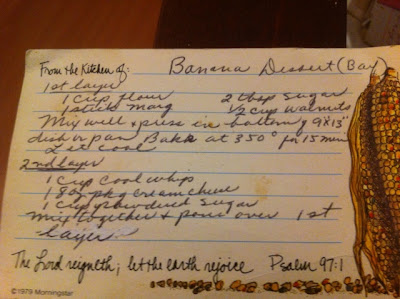 From the Kitchen of: Banana Dessert (Bay)
1st layer
1 cup flour 2 tbsp sugar
1 stick marg 1/2 cup walnuts
Mix well & press in bottom of 9X13"
dish or pan Bake at 350° for 15 min
Let cool
2nd layer
1 cup cool whip
1 8oz pkg cream cheese
1 cup powdered sugar
Mix together & pour over 1st
layer
The Lord reigneth; let the earth rejoice Psalm 97:1
©1979 Morningstar